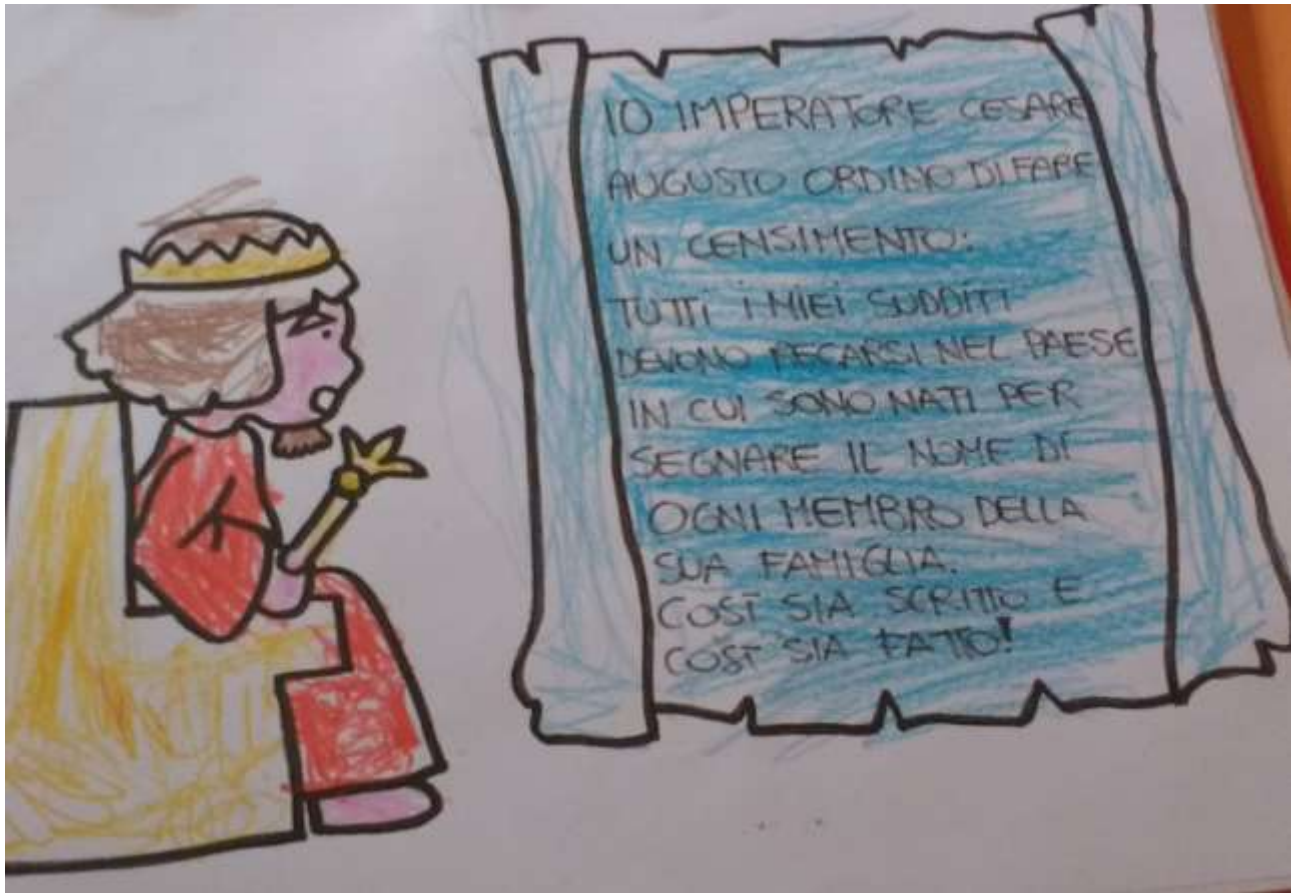 IO IMPERATORE CESARE
AUGUSTO ORDINO DI FARE
UN CENSIMENTO:
TUTTI I MIEI SUDDITI
DEVONO RECARSI NEL PAESE
IN CUI SONO NATI PER
SEGNARE IL NOME DI
OGNI MEMBRO DELLA
SUA FAMIGLIA.
COSÌ SIA SCRITTO E
COSÌ SIA FATTO!